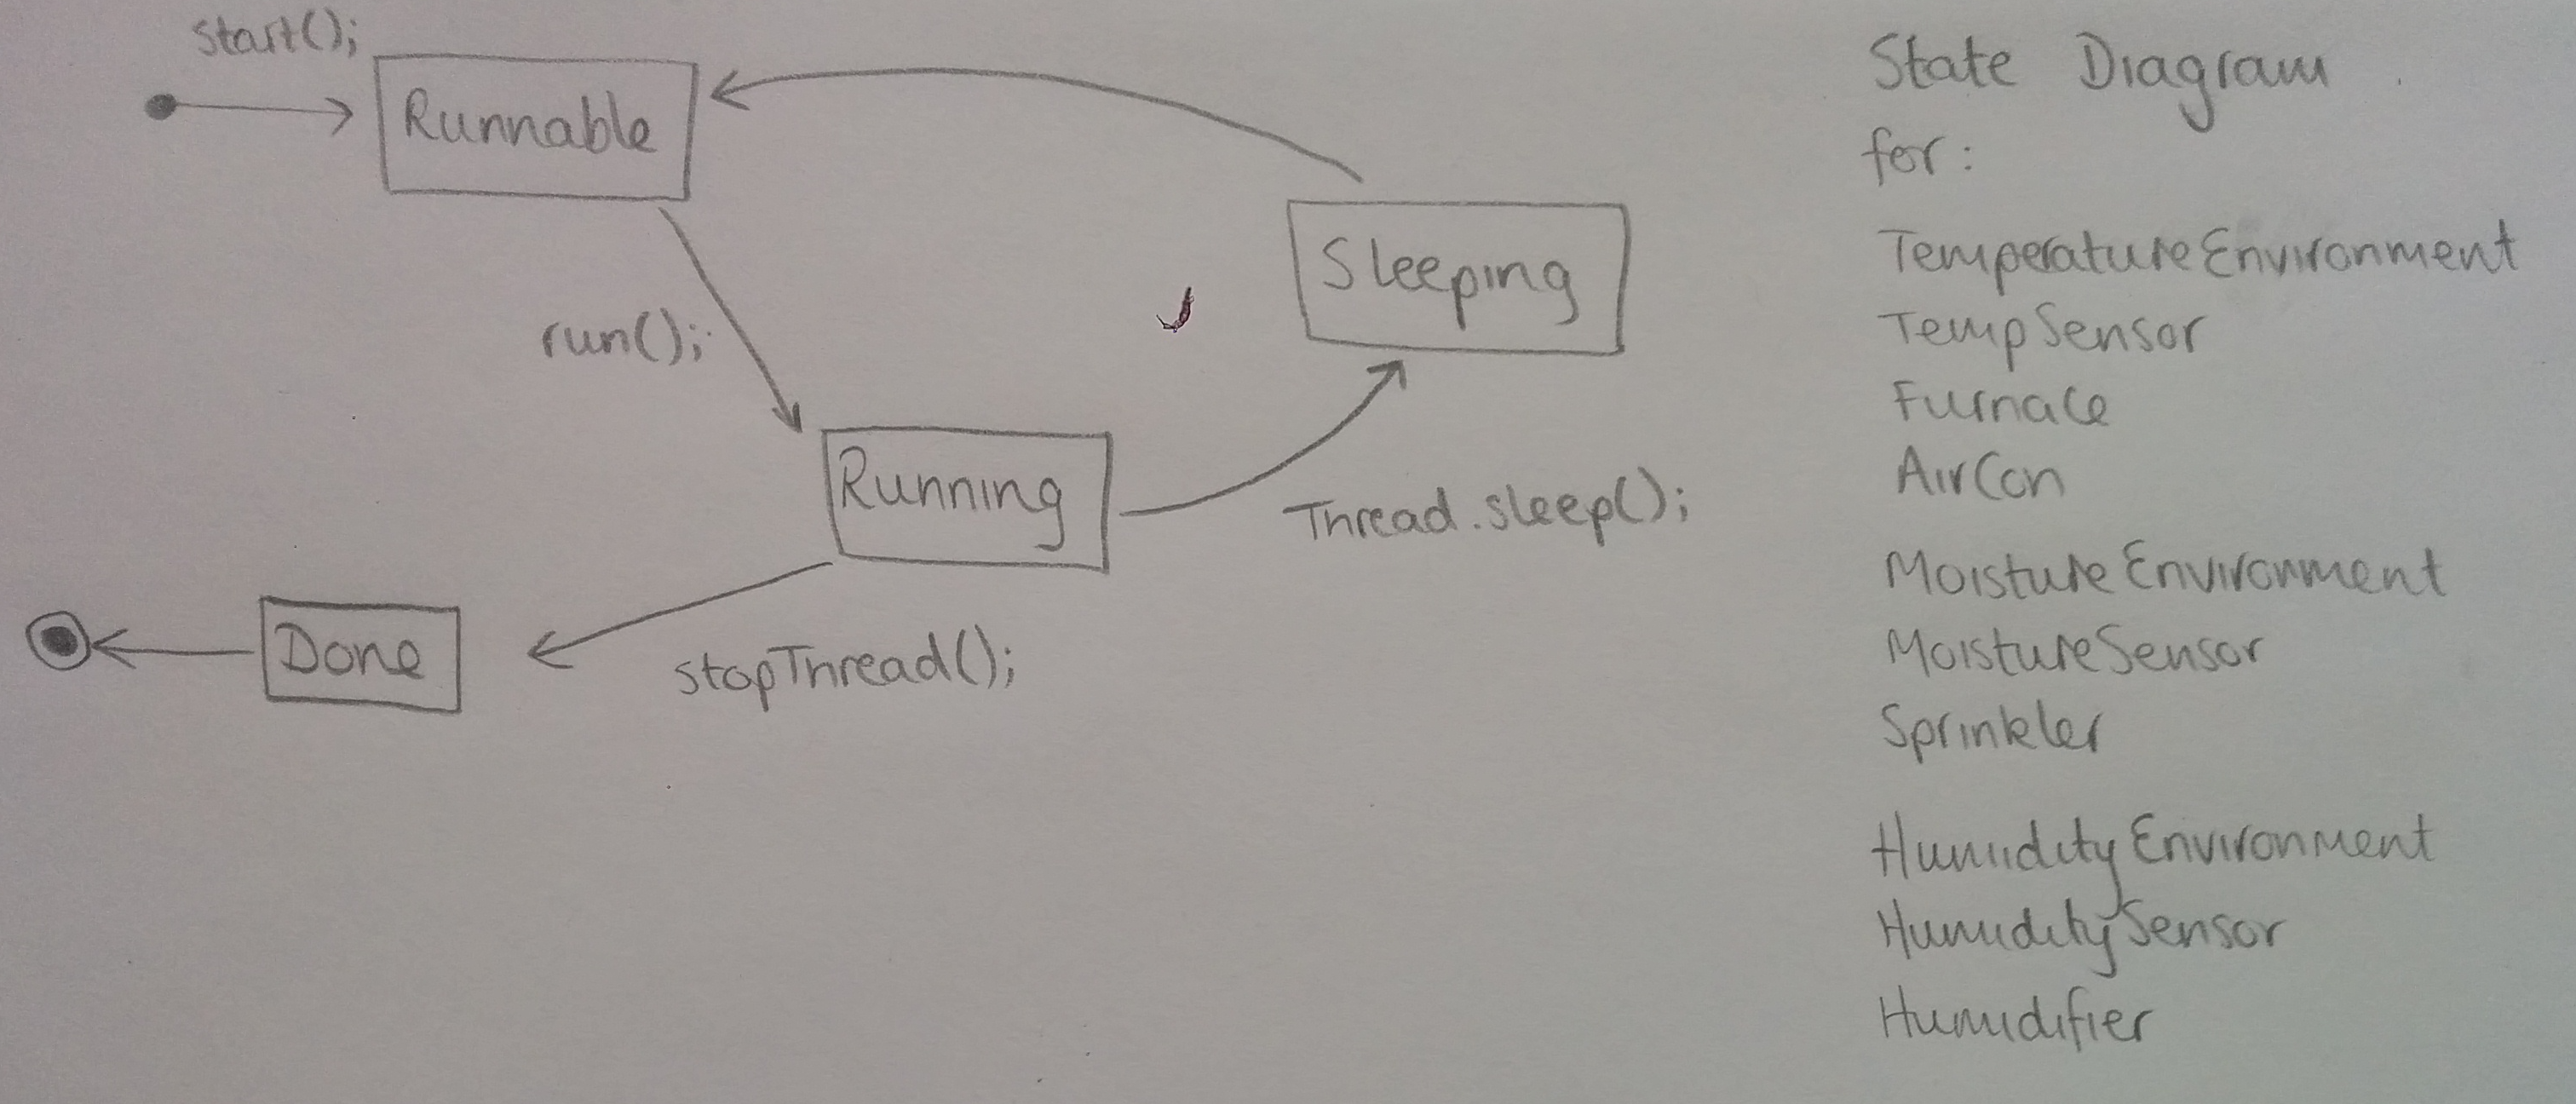 start();
Runnable
run();
Sleeping
Running
Thread.sleep();
stopThread();
Done
State Diagram
for:
TemperatureEnvironment
TempSensor
Furnace
AirCon
MoistureEnvironment
MoistureSensor
Sprinkler
HumidityEnvironment
HumiditySensor
Humidifier